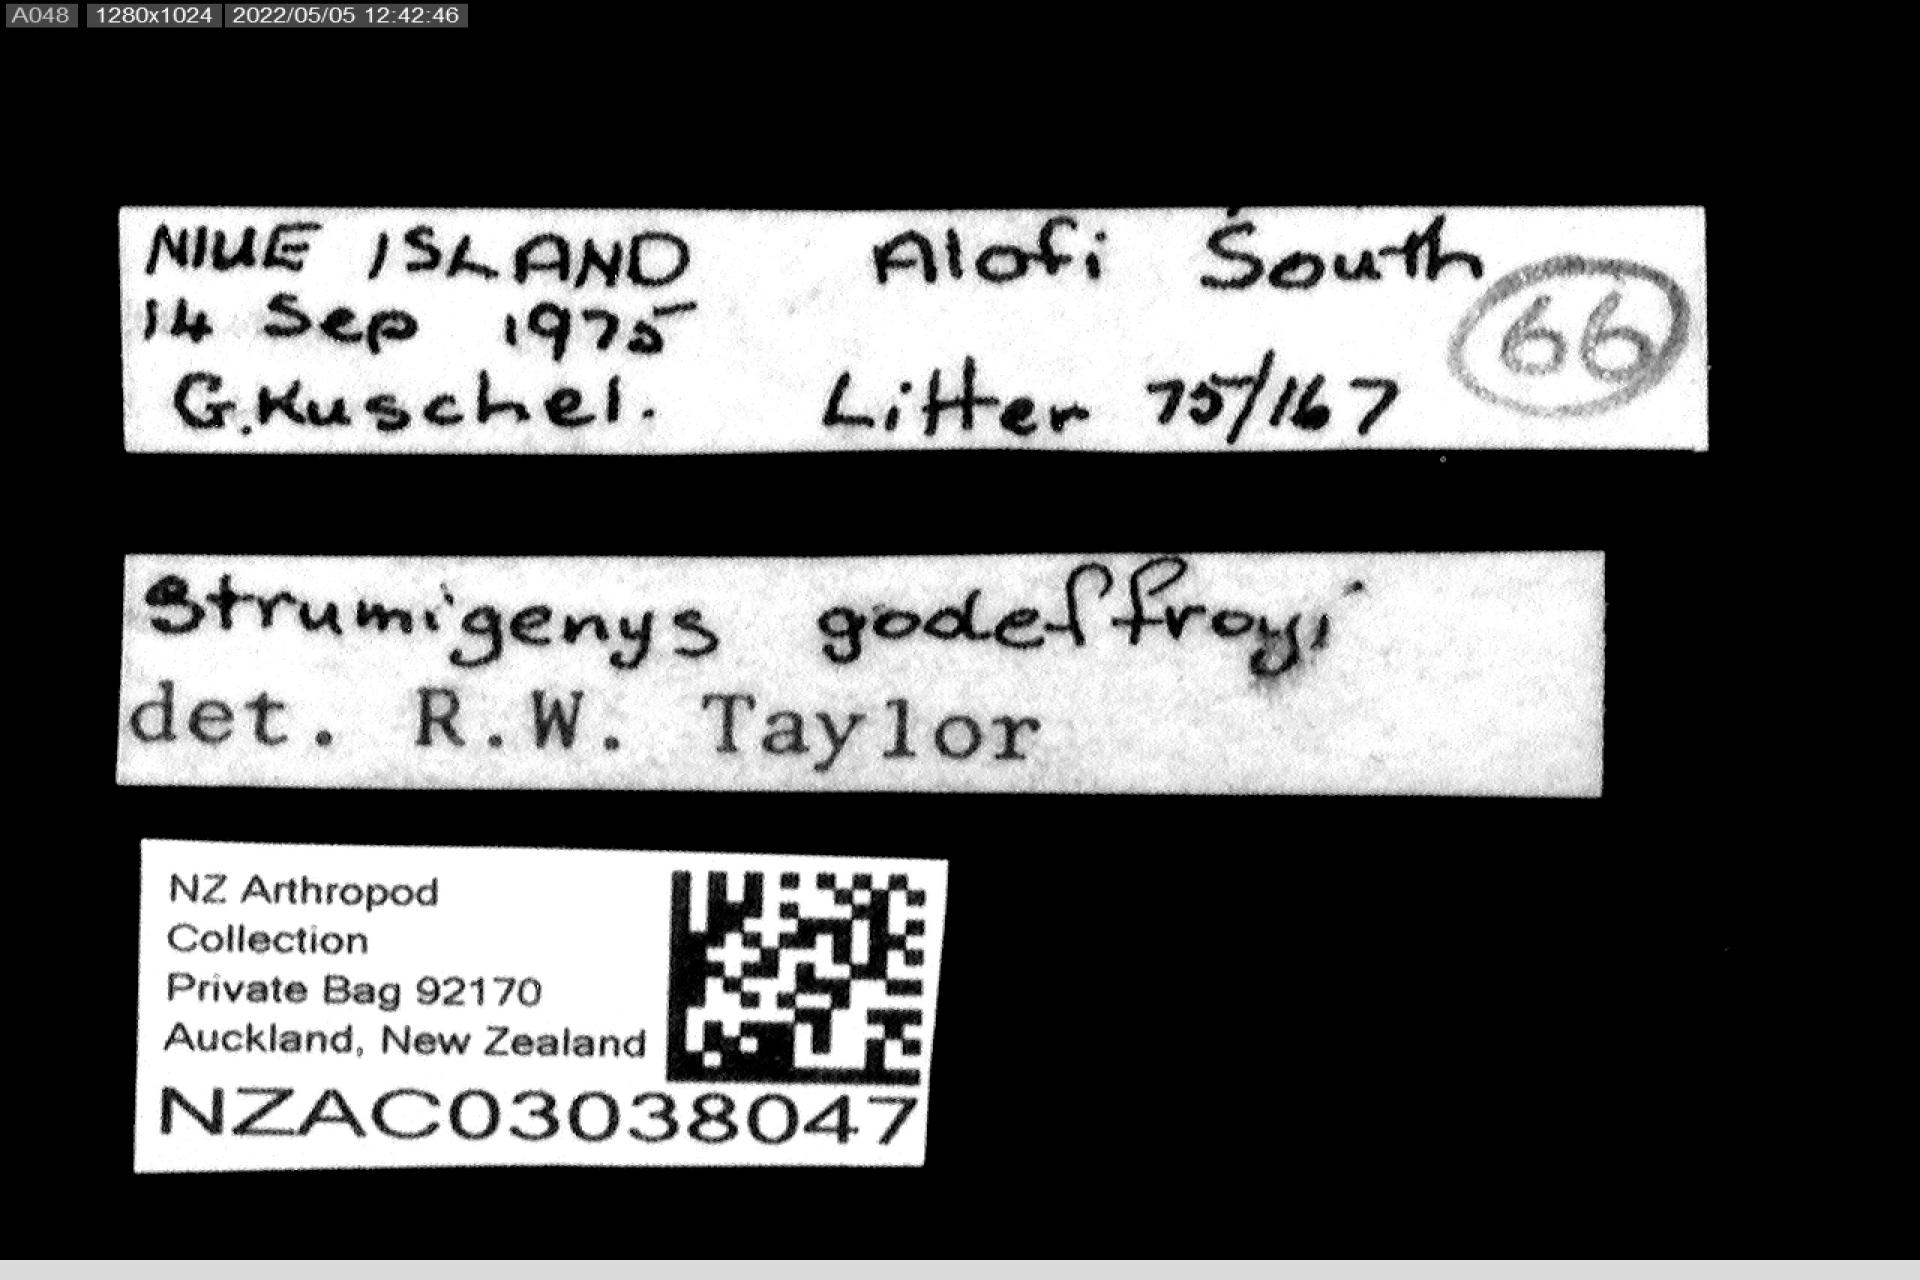 A048 1280x1024 2022/05/05 12:42:46
NIUE ISLAND Alofi South
14 Sep 1975 66
G.Kuschel. Litter 75/167
Strumigenys godeffroyi
det. R.W. Taylor
NZ Arthropod
Collection
Private Bag 92170
Auckland, New Zealand
NZAC03038047